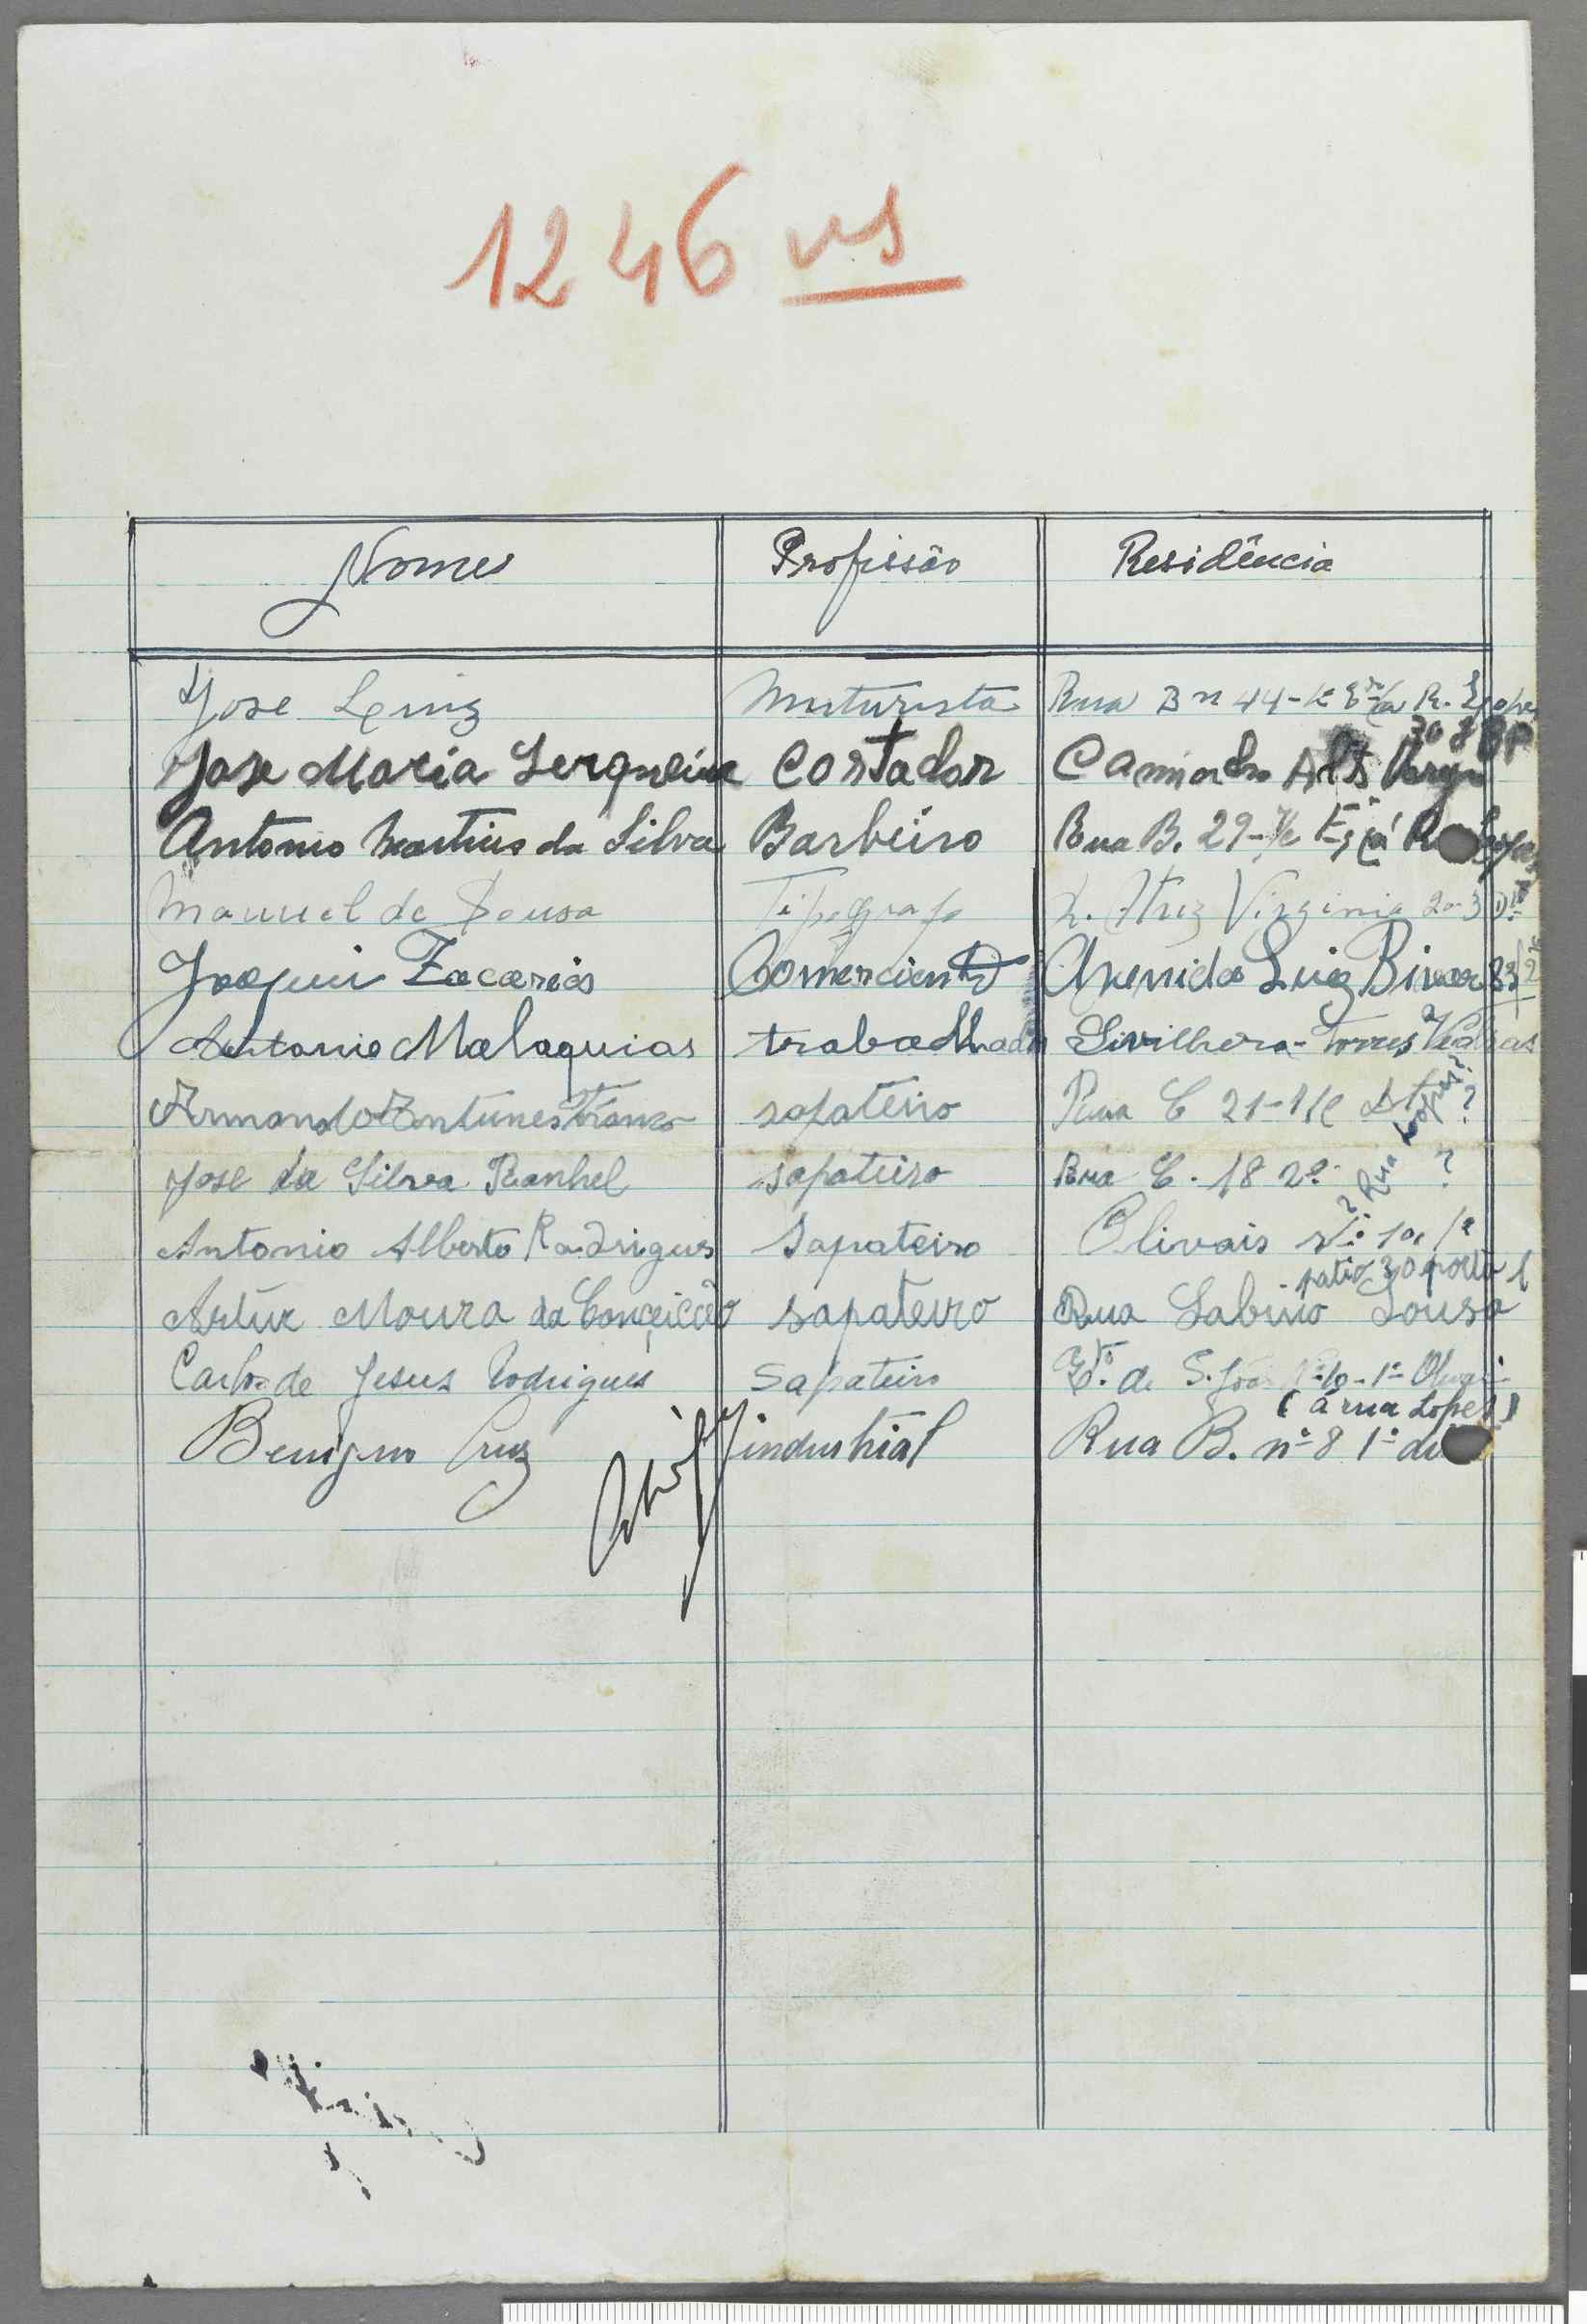 1246 vs
Nomes Profissão Residência
Jose Luiz Muturista Rua B n 44 - R.
Jose Maria Serqueira Cortador Caminho Alto Vargem
Antonio Martins da Silva Barbeiro Rua B. 29-
Manuel de Sousa Tipografo Virginia 20-3 D
Joaquin Zacarias Comerciente Avenida Luiz Bivar 83
Antonio Malaquias trabalhador Torres Vedras
Armando Antunes Franco sapateiro Rua C 21-1/c Dt ?
Rua Lopes?
Jose da Silva Ranhel sapateiro Rua C. 18 2º ?
Antonio Alberto Rodrigues Sapateiro Olivais
patio 30 porta 1
Artur Moura da Conçeicão sapateiro Rua Sabino Sousa
Carlos de Jesus Rodrigues Sapateiro de S. João Nº 10-1º
(á rua Lopes)
Benigno Cruz industrial Rua B. nº 8 1º